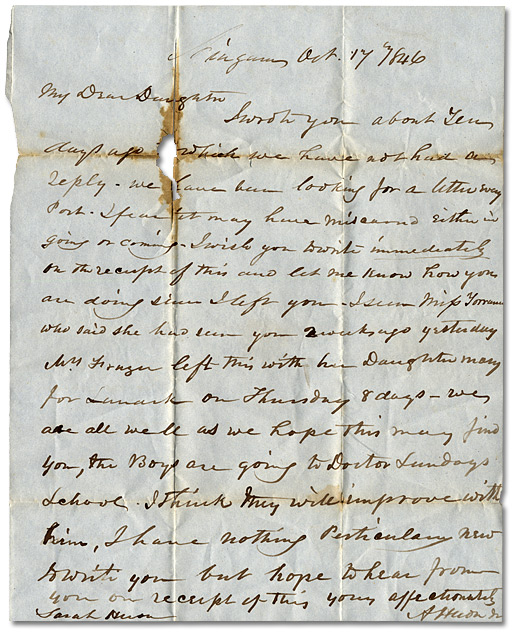 Niagara Oct. 17th 1846
My Dear Daughter
I wrote you about Ten
days ago which we have not had an
reply - we have been looking for a letter every
Post - I fear it may have miscarried either in
going or coming - I wish you to write immediately
on the receipt of this and let me know how you
are doing since I left you - I seen Miss Torrance
who said she had seen you 2 weeks ago yesterday
Mrs Frazer left this with her Daughter Mary
for Lanark on Thursday 8 days - we
are all well as we hope this may find
you, the Boys are going to Doctor Lundys
School. I think they will improve with
him, I have nothing Perticular new
to write you but hope to hear from
you on receipt of this yours affectionately
Sarah Heron A Heron